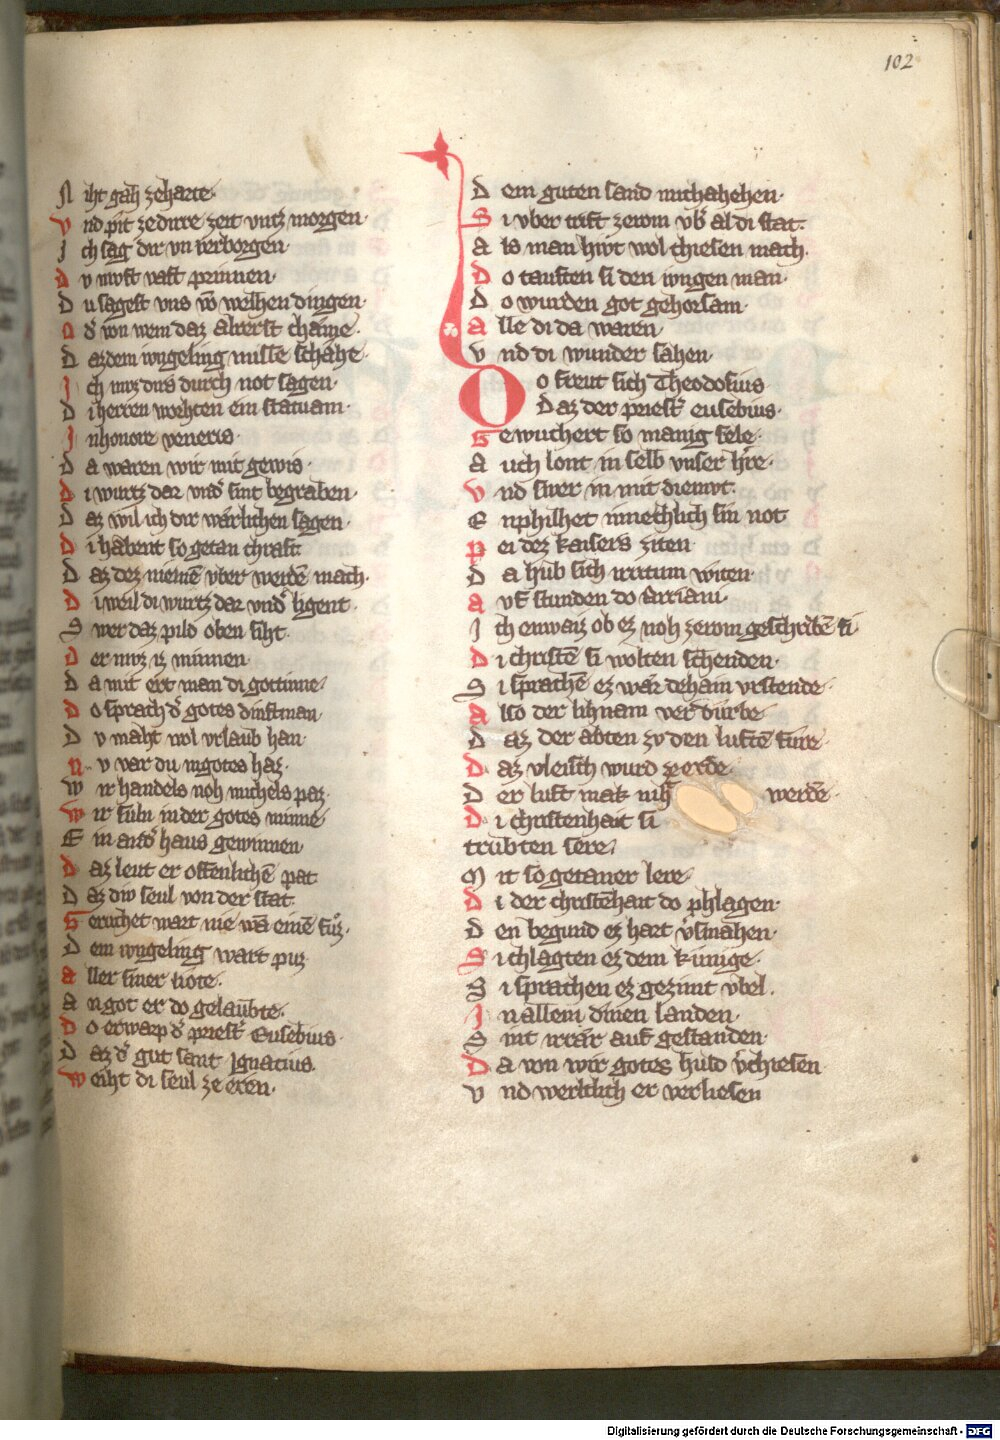 102
N iht gah zeharte·
V nd pit zedirre zeit vntz morgen·
I ch sag dir vnverborgen·
D v mvst vast prinnen·
D u sagest vns vō welhen dingen·
O d᾽ von wem daz alrerst chæme·
D azdem ivngeling misse schæhe·
I ch mvz dirs durch not sagen·
D i herren worhten ein statuam·
I nhonore veneris·
D a waren wir mit gewis·
D i wurtz dar vnd᾽ sint begraben·
D az wil ich dir wærlichen sagen·
D i habent so getan chraft
D az dez niemē vber werdē mach·
D i weil di wurtz dar vnd᾽ ligent·
S wer daz pild oben siht·
D er mvz iz minnen·
D a mit ert man di gottinne·
D o sprach d᾽ gotes dinstman·
D v maht wol vrlaub han·
N v var du ingotes haz·
W ir handels noh michels paz·
W ir suln in der gotes minne
E in and᾽ haus gewinnen·
D az leut er offenlichē pat
D az div seul von der stat·
G eruchet wart nie wā einē fuz·
D em ivngeling wart puz
A ller siner note·
A n got er do gelaubte·
D o erwarp d᾽ priest᾽ Eusebius·
D az d᾽ gut sant Ignatius·
W eiht di seul ze eren·
D em guten sand michahehen·
S i vber trift zerom vb᾽ al di stat·
A ls man hivt wol chiesen mach·
D o tauften si den ivngen man·
D o wurden got gehorsam·
A lle di da waren·
V nd di wunder sahen·
D o freut sich Theodosius
D az der priest᾽ eusebius·
G ewuchert so manig sele·
A uch lont in selb vnser h᾽re·
V nd swer in mit diemvt·
E nphilhet innechlich sin not
P ei dez kaisers ziten
D a hub sich irrtum witen·
A vf stunden do arriani·
I ch enwaiz ob ez noh zerom geschribē si·
D i christē si wolten schenden·
S i sprachē ez wær dehain vrstende·
A lso der lihnam verdurbe·
D az der adten zv den luftē fure·
D az vleisch wurd ze erde·
D er luft mak niht werdē·
D i christenhait si
trubten sere·
M it so getaner lere·
D i der christēhait do phlagen·
D en begund ez hart v᾽smahen·
S i chlagten ez dem kunige·
S i sprachen ez gezimt vbel·
I n allem dinen landen·
S int irrær auf gestanden·
D a von wir gotes huld v᾽chiesen·
V nd werltlich er verliesen
Digitalisierung gefördert durch die Deutsche Forschungsgemeinschaft - DFG